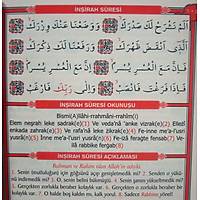 İNŞİRAH SÛRESİ
أَلَمْ نَشْرَحْ لَكَ صَدْرَكَ وَوَضَعْنَا عَنْكَ وِزْرَكَ
اَلَّذِى أَنْقَضَ ظَهْرَكَ وَرَفَعْنَا لَكَ ذِكْرَكَ
فَإِنَّ مَعَ الْعُسْرِ يُسْرًا إِنَّ مَعَ الْعُسْرِ يُسْرًا
فَإِذَا فَرَغْتَ فَانْصَبْ وَإِلٰى رَبِّكَ فَارْغَبْ
İNŞİRAH SÛRESİ OKUNUŞU
Bismi(A)llâhi-rrahmâni-rrahîm(i)
Elem neşrah leke sadrak(e)(1) Ve veda'nâ 'anke vizrak(e)(2) Ellezî
enkada zahrak(e)(3) Ve rafa'nâ leke zikrak(e)(4) Fe-inne me'a-l'usri
yusrâ(n)(5) İnne me'a-l'usri yusrâ(n)(6) Fe-izâ feraġte fensab(7) Ve-
ilâ rabbike ferġab(8)
İNŞİRAH SÛRESİ AÇIKLAMASI
Rahman ve Rahim olan Allah'ın adıyla
1. Senin (mutluluğun) için göğsünü açıp genişletmedik mi? 2. Senden o yükü
indirmedik mi? 3. O senin belini bükmekte olan. 4. Senin şanını yükseltmedik mi?
5. Gerçekten zorlukla beraber kolaylık var. 6. Gerçekten o zorlukla beraber bir
kolaylık var. 7. O halde boş kaldın mı, kalk yorul! 8. Sadece Rabbine yönel!